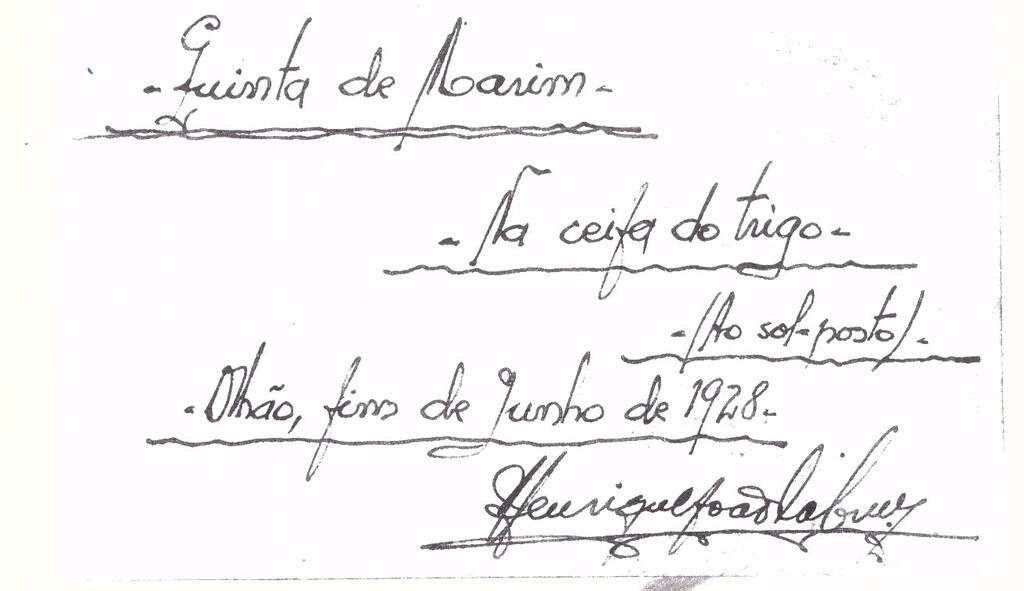 - Quinta de Marim -
- Na ceifa do trigo -
- (Ao sol-posto) -
- Olhão, fins de Junho de 1928 -
Henrique João